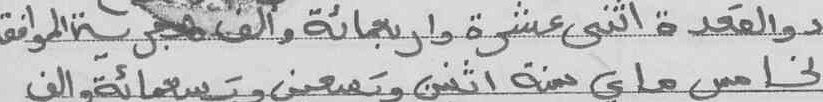 ذوالقعدة اثنى عشرة واربعمائة والف هجرية الموافق
لخامس ماي سنة اثنين وتسعين وتسعمائة والف